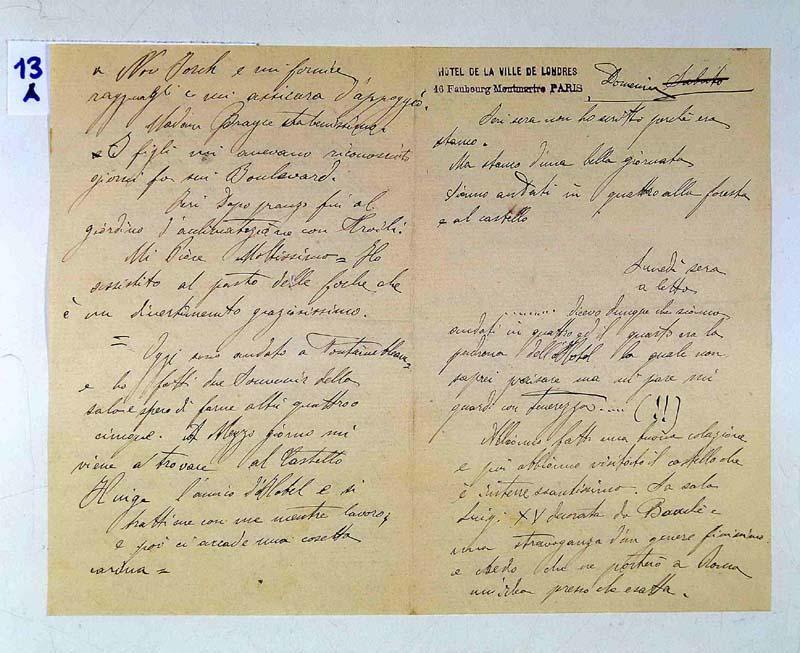 13
A
a Nov Jorch e mi fornire
ragguagli e mi assicura d'appoggio
Madame
I figli mi avevano riconosciuto
giorni fa sui Boulevard.
Ieri Dopo pranzo fui al
giardino d'acclimatazione con
Mi Piace Moltissimo = Ho
assistito al pasto delle foche che
è un divertimento graziosissimo.
= Oggi sono andato a Fontainebleau =
e ho fatti due Souvenir della
sala e spero di farne altri quattro o
cinque. A Mezzo giorno mi
viene a trovare al Castello
l'amico d'Hotel e si
trattiene con me mentre lavoro,
e poi ci accade una cosetta
carina =
HOTEL DE LA VILLE DE LONDRES
16 Faubourg Montmartre PARIS
Domenica Sabato
Ieri sera non ho scritto perchè ero
stanco.
Ma stanco d'una bella giornata
Siamo andati in quattro alla foresta
e al castello
Lunedì sera
a letto
......... dicevo dunque che siamo
andati in quattro ed il quarto era la
padrona dell'Hotel la quale non
saprei precisare ma mi pare mi
guardi con Tenerezza..... (!!)
Abbiamo fatti una buona colazione
e poi abbiamo visitato il castello che
è interessantissimo. La sala
Luigi XV decorata da
una stravaganza d'un genere finissimo
e credo che ne porterò a Roma
un'idea presso che esatta.